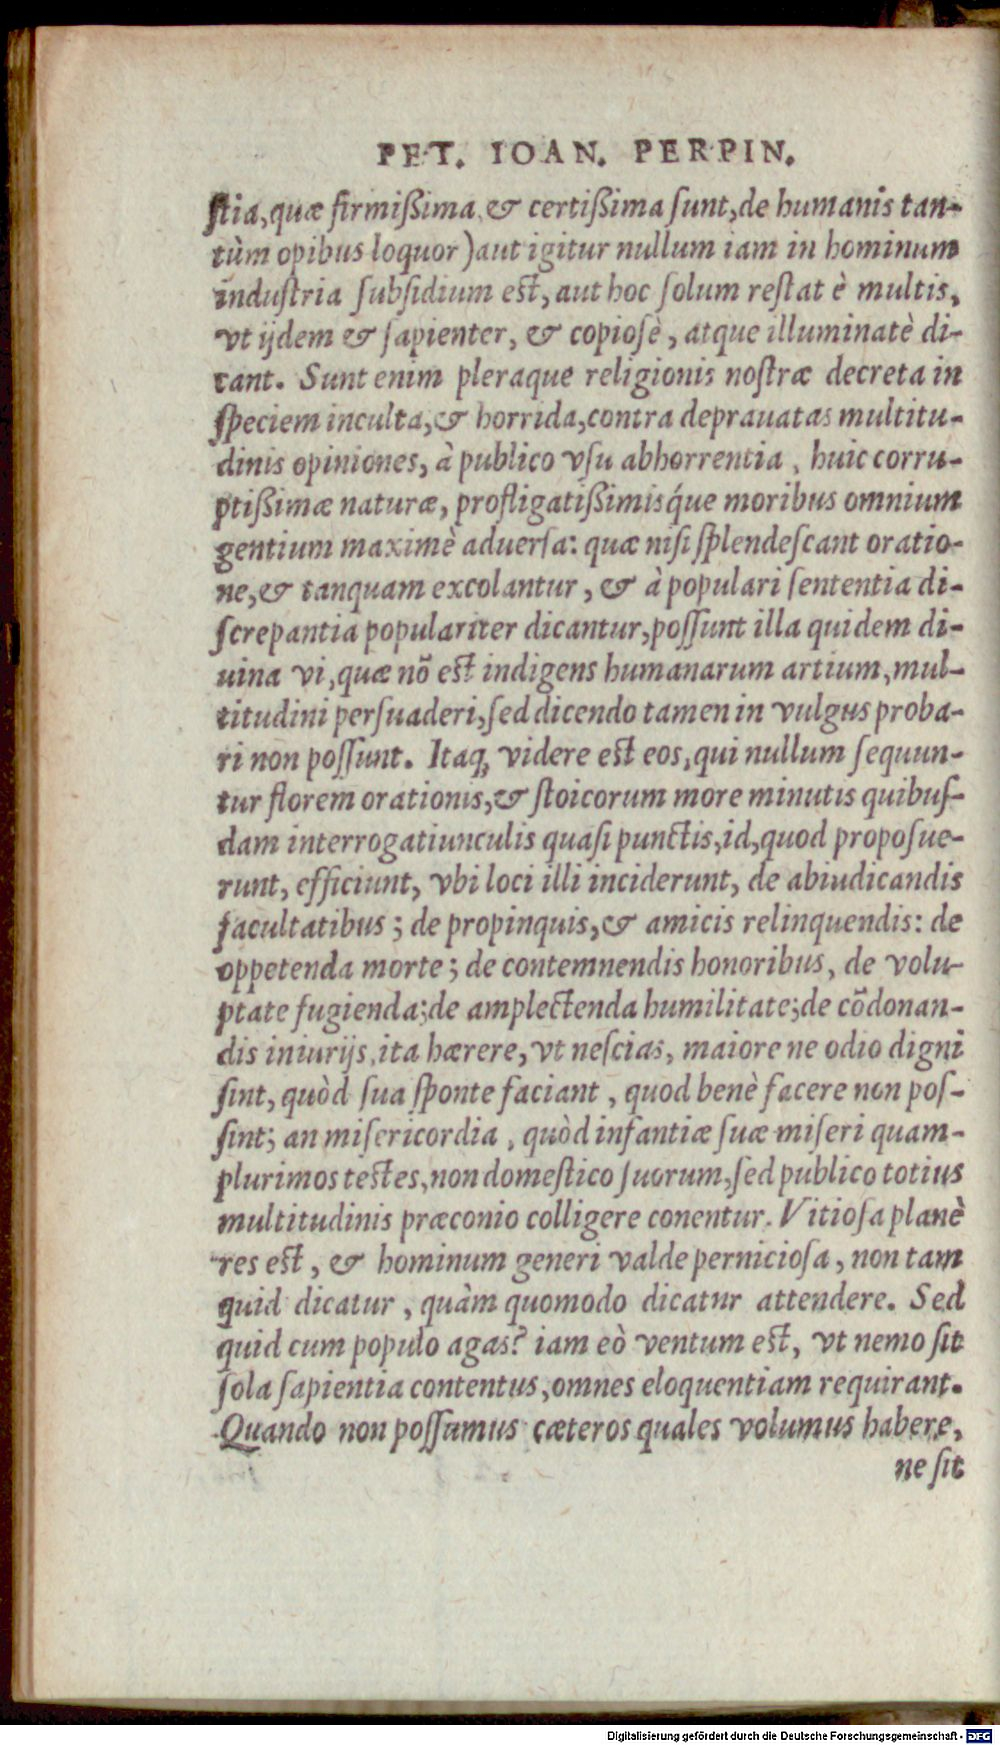 PET. IOAN. PERPIN.
ſtia, quæ firmißima, & certißima ſunt, de humanis tan-
tùm opibus loquor) aut igitur nullum iam in hominum
induſtria ſubſidium eſt, aut hoc ſolum reſtat è multis,
vt ijdem & ſapienter, & copiosè, atque illuminatè di-
cant. Sunt enim pleraque religionis noſtræ decreta in
ſpeciem inculta, & horrida, contra deprauatas multitu-
dinis opiniones, à publico vſu abhorrentia, huic corru-
ptißimæ naturæ, profligatißimisq́ue moribus omnium
gentium maximè aduerſa: quæ niſi ſplendeſcant oratio-
ne, & tanquam excolantur, & à populari ſententia di-
ſcrepantia populariter dicantur, poſſunt illa quidem di-
uina vi, quæ nõ eſt indigens humanarum artium, mul-
titudini perſuaderi, ſed dicendo tamen in vulgus proba-
ri non poſſunt. Itaq; videre eſt eos, qui nullum ſequun-
tur florem orationis, & ſtoicorum more minutis quibuſ-
dam interrogatiunculis quaſi punctis, id, quod propoſue-
runt, efficiunt, vbi loci illi inciderunt, de abiudicandis
facultatibus; de propinquis, & amicis relinquendis: de
oppetenda morte; de contemnendis honoribus, de volu-
ptate fugienda; de amplectenda humilitate; de cõdonan-
dis iniurijs, ita hærere, vt neſcias, maiore ne odio digni
ſint, quòd ſua ſponte faciant, quod benè facere non poſ-
ſint; an miſericordia, quòd infantiæ ſuæ miſeri quam-
plurimos teſtes, non domeſtico ſuorum, ſed publico totius
multitudinis præconio colligere conentur. Vitioſa planè
res eſt, & hominum generi valde pernicioſa, non tam
quid dicatur, quàm quomodo dicatur attendere. Sed
quid cum populo agas? iam eò ventum eſt, vt nemo ſit
ſola ſapientia contentus, omnes eloquentiam requirant.
Quando non poſſumus cæteros quales volumus habere,
ne ſit
Digitalisierung gefördert durch die Deutsche Forschungsgemeinschaft - DFG